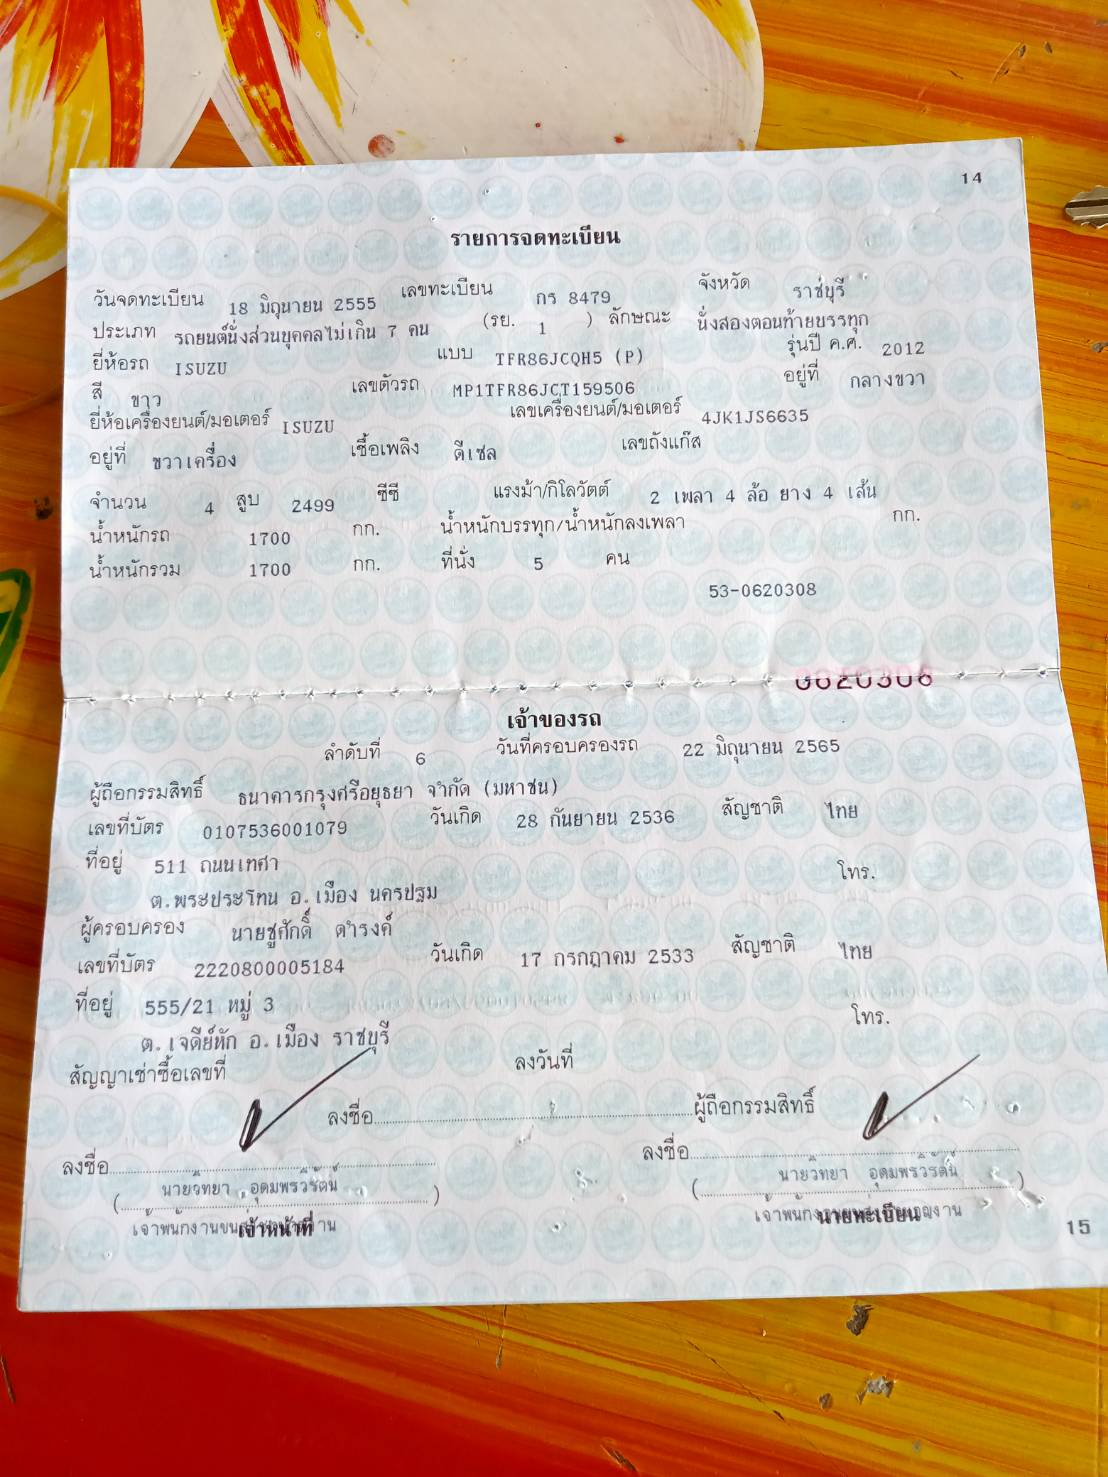 14
รายการจดทะเบียน
วันจดทะเบียน 18 มิถุนายน 2555 เลขทะเบียน กร 8479 จังหวัด ราชบุรี
ประเภท รถยนต์นั่งส่วนบุคคลไม่เกิน 7 คน (รย. 1 ) ลักษณะ นั่งสองตอนท้ายบรรทุก
ยี่ห้อรถ ISUZU แบบ TFR86JCQH5 (P) รุ่นปี ค.ศ. 2012
สี ขาว เลขตัวรถ MP1TFR86JCT159506 อยู่ที่ กลางขวา
ยี่ห้อเครื่องยนต์/มอเตอร์ ISUZU เลขเครื่องยนต์/มอเตอร์ 4JK1JS6635
อยู่ที่ ขวาเครื่อง เชื้อเพลิง ดีเซล เลขถังแก๊ส
จำนวน 4 สูบ 2499 ซีซี แรงม้า/กิโลวัตต์ 2 เพลา 4 ล้อ ยาง 4 เส้น
น้ำหนักรถ 1700 กก. น้ำหนักบรรทุก/น้ำหนักลงเพลา กก.
น้ำหนักรวม 1700 กก. ที่นั่ง 5 คน
53-0620308
เจ้าของรถ
ลำดับที่ 6 วันที่ครอบครองรถ 22 มิถุนายน 2565
ผู้ถือกรรมสิทธิ์ ธนาคารกรุงศรีอยุธยา จำกัด (มหาชน)
เลขที่บัตร 0107536001079 วันเกิด 28 กันยายน 2536 สัญชาติ ไทย
ที่อยู่ 511 ถนนเทศา โทร.
ต.พระประโทน อ.เมือง นครปฐม
ผู้ครอบครอง นายชูศักดิ์ ดำรงค์
เลขที่บัตร 2220800005184 วันเกิด 17 กรกฎาคม 2533 สัญชาติ ไทย
ที่อยู่ 555/21 หมู่ 3 โทร.
ต.เจดีย์หัก อ.เมือง ราชบุรี
สัญญาเช่าซื้อเลขที่ ลงวันที่
ลงชื่อ ผู้ถือกรรมสิทธิ์
ลงชื่อ ลงชื่อ
(นายวิทยา อุดมพรวิรัตน์) (นายวิทยา อุดมพรวิรัตน์)
เจ้าหน้าที่ นายทะเบียน
15